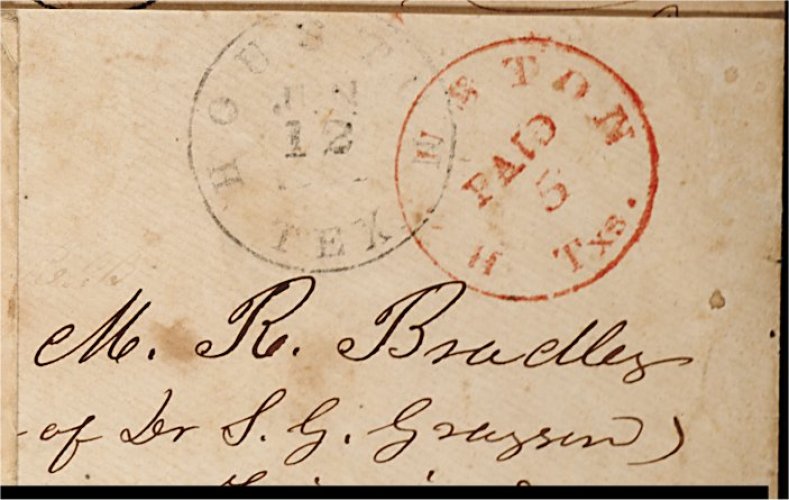 HOUSTON
12
TEX
H STON Txs.
PAID
5
M. R. Bradley
of Dr S. G. Grayson)